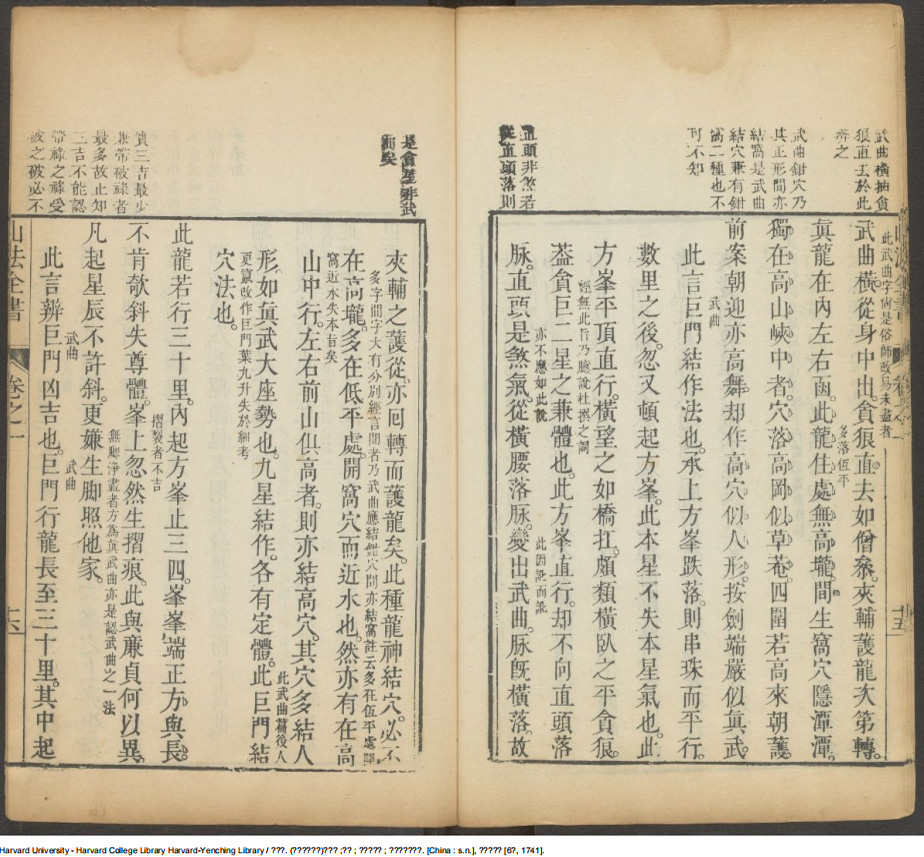 武曲橫抽貪
狼直去於此
辨之
武曲鉗穴乃
其正形間亦
結窩是武曲
結穴兼有鉗
窩二種也不
可不知
直頭非煞若
從直頭落則
此武曲字尚是俗師改易未盡者
武曲橫從身中出。貪狼直去如僧叅。夾輔護龍次第轉。
多落低平
眞龍在內左右函。此龍住處無高壠。間生窩穴隱潭潭。
獨在高山峽中者。穴落高岡似草菴。四圍若高來朝護。
前案朝迎亦高舞。却作高穴似人形。按劍端嚴似眞武。
武曲
此言巨門結作法也。承上方峯跌落。則串珠而平行。
數里之後。忽又頓起方峯。此本星不失本星氣也。此
方峯平頂直行。橫望之如橋扛。頗類橫臥之平貪狼。
經無此旨乃臆說杜撰之詞
葢貪巨二星之兼體也。此方峯直行。却不向直頭落
亦不應如此說
此因訛而訛
脉。直頭是煞氣。從橫腰落脉。變出武曲。脉旣橫落。故
山法全書
卷之一
十五
是貪星非武
曲矣
貪三吉最少
兼帶破祿者
最多故止知
三吉不能認
帶祿之祿受
破之破必不
夾輔之護從。亦囘轉而護龍矣。此種龍神結穴。必不
多字間字大有分別經言間者乃武曲應結鉗穴間亦結窩註云多在低平處開
窩近水失本旨矣
在高壠。多在低平處。開窩穴而近水也。然亦有在高
山中行。左右前山俱高者。則亦結高穴。其穴多結人
此武曲篇後人
形。如眞武大座勢也。九星結作。各有定體。此巨門結
更竄改作巨門葉九升失於細考
穴法也。
此龍若行三十里。內起方峯止三四。峯峯端正方與長。
摺裂者不吉
不肯欹斜失尊體。峯上忽然生摺痕。此與廉貞何以異。
無脚淨盡者方爲眞武曲亦是認武曲之一法
凡起星辰不許斜。更嫌生脚照他家。
武曲
武曲
此言辨巨門凶吉也。巨門行龍長至三十里。其中起
山法全書
卷之一
十六
Harvard University - Harvard College Library Harvard-Yenching Library / ???. (??????)??? ;?? ; ????? ; ???????. [China : s.n.], ????? [6?, 1741].